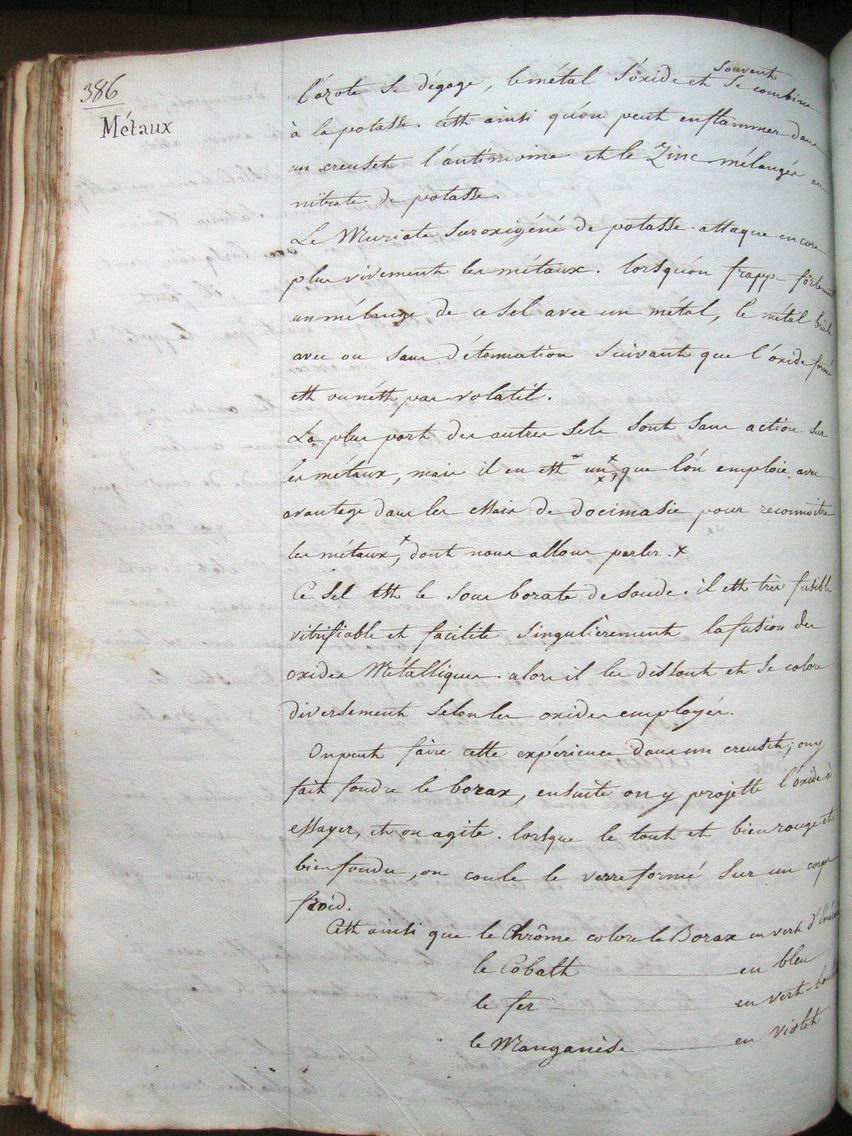 386
Métaux
l'azote se dégage, le métal s'oxide et souvent se combine
à la potasse. C'est ainsi qu'on peut enflammer dans
un creuset l'antimoine et le Zinc mélangés au
nitrate de potasse.
Le Muriate suroxigéné de potasse attaque encore
plus vivement les métaux. lorsqu'on frappe fortement
un mélange de ce sel avec un métal, le métal brule
avec ou sans détonnation suivant que l'oxide formé
est ou n'est pas volatil.
La plus part des autres sels sont sans action sur
les métaux, mais il en est un, que l'on emploie avec
avantage dans les essais de docimasie pour reconnoitre
les métaux, dont nous allons parler.
Ce sel est le sous borate de soude. il est très fusible
vitrifiable et facilite singulièrement la fusion des
oxides Métalliques. alors il les dissout et se colore
diversement selon les oxides employés.
On peut faire cette expérience dans un creuset; on y
fait fondre le borax, ensuite on y projette l'oxide à
essayer, et on agite. lorsque le tout est bien rouge et
bien fondu, on coule le verre formé sur un corps
froid.
C'est ainsi que le Chrôme colore le Borax en vert d'
le Cobalt en bleu
le fer en vert-
le Manganèse en violet